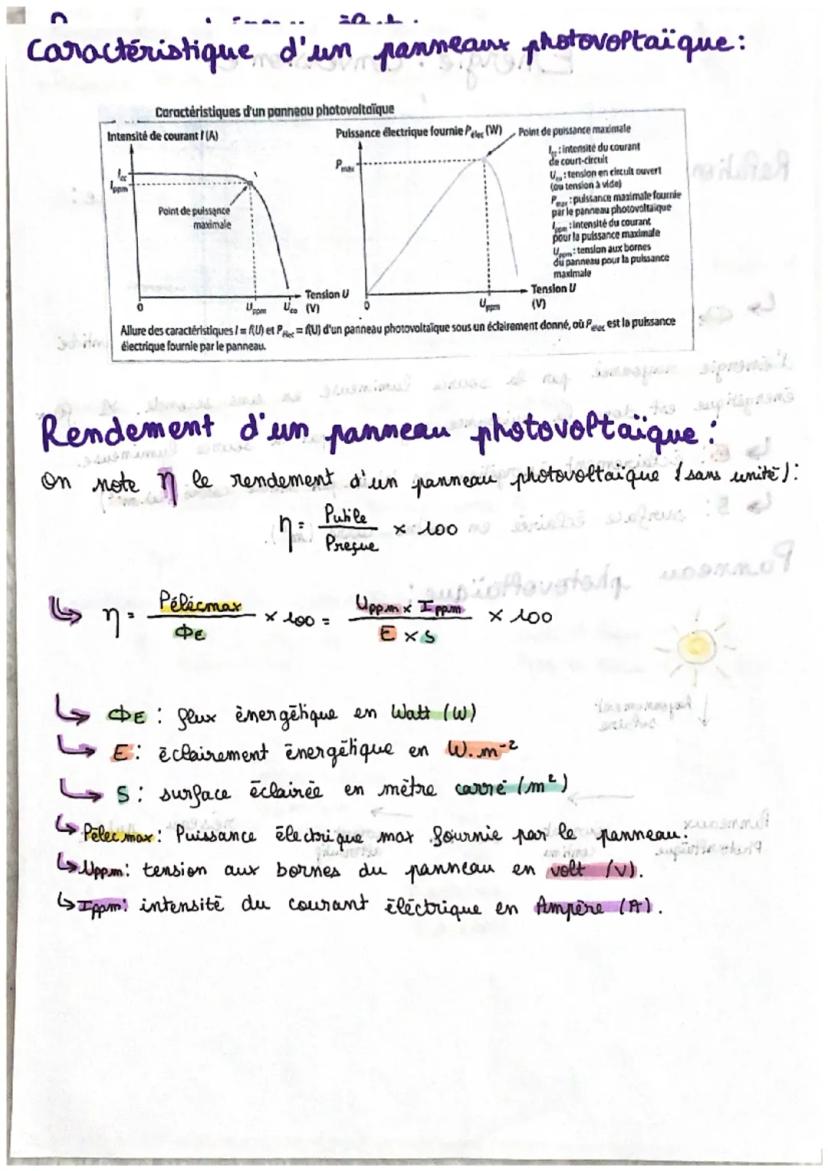 Caractéristique d'un panneaux photovoltaïque:
Caractéristiques d'un panneau photovoltaïque
Intensité de courant I (A)
Icc
Ippm
Point de puissance
maximale
0
Uppm
Uco
Tension U
(V)
Puissance électrique fournie Pelec (W)
Pmax
Point de puissance maximale
0
Uppm
Tension U
(V)
Icc : intensité du courant
de court-circuit
Uco : tension en circuit ouvert
(ou tension à vide)
Pmax : puissance maximale fournie
par le panneau photovoltaïque
Ippm : intensité du courant
pour la puissance maximale
Uppm : tension aux bornes
du panneau pour la puissance
maximale
Allure des caractéristiques I = f(U) et Pelec = f(U) d'un panneau photovoltaïque sous un éclairement donné, où Pelec est la puissance
électrique fournie par le panneau.
Rendement d'un panneau photovoltaïque:
On note η le rendement d'un panneau photovoltaïque (sans unité):
η = Putile / Preçue × 100
↳ η = Pélécmax / ΦE × 100 = Uppm × Ippm / E × S × 100
↳ ΦE : flux énergétique en Watt (W)
↳ E : éclairement énergétique en W.m⁻²
↳ S : surface éclairée en mètre carré (m²)
↳ Pélec max : Puissance électrique max fournie par le panneau.
↳ Uppm : tension aux bornes du panneau en volt (V).
↳ Ippm : intensité du courant électrique en Ampère (A).